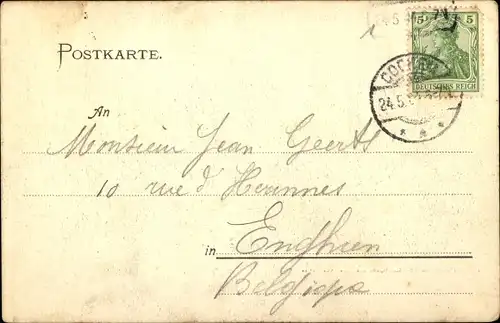 24.5.
5 5
DEUTSCHES REICH
POSTKARTE.
24.5.
An
Monsieur Jean Geerts
10 rue d'Herinnes
in Enghien
Belgique